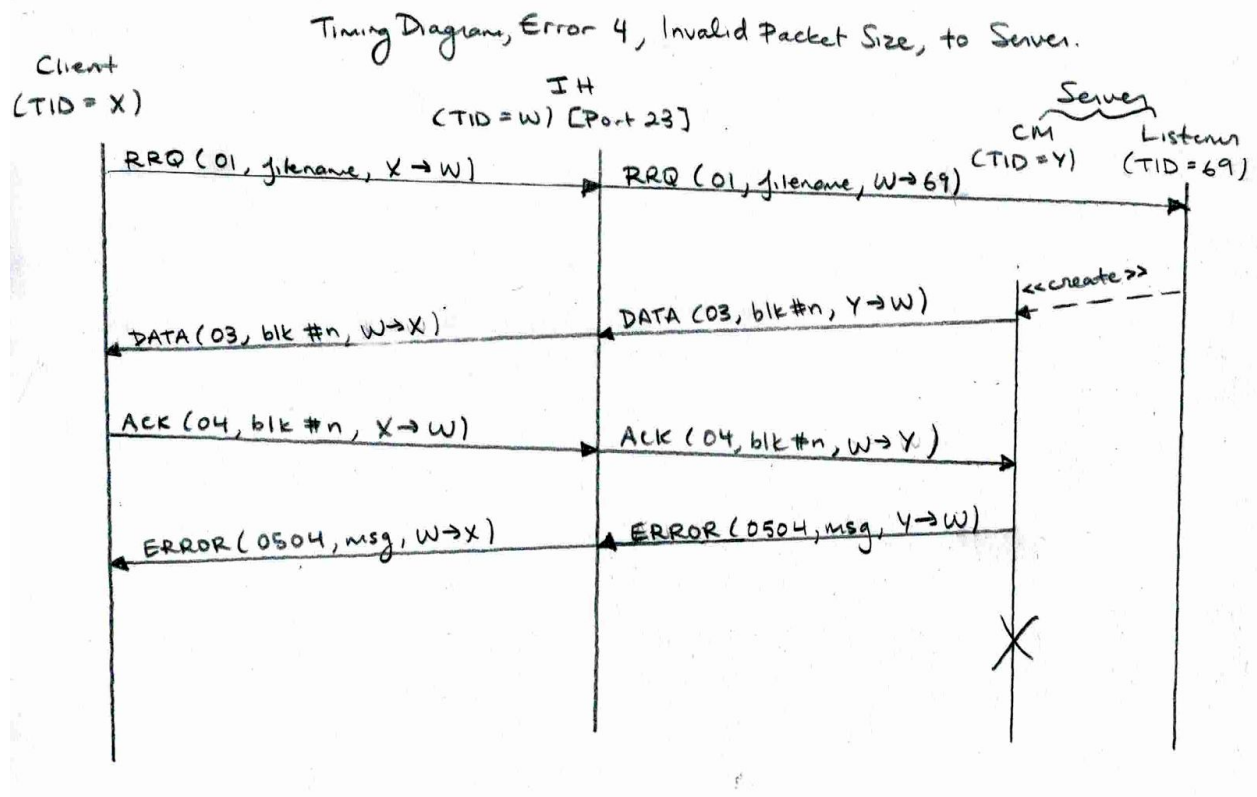 Timing Diagram, Error 4, Invalid Packet Size, to Server.
Client
(TID = X)
IH
(TID = W) [Port 23]
Server
CM
(TID = Y)
Listener
(TID = 69)
RRQ (01, filename, X→W)
RRQ (01, filename, W→69)
<<create>>
DATA (03, blk #n, Y→W)
DATA (03, blk #n, W→X)
ACK (04, blk #n, X→W)
ACK (04, blk #n, W→Y)
ERROR (0504, msg, Y→W)
ERROR (0504, msg, W→X)